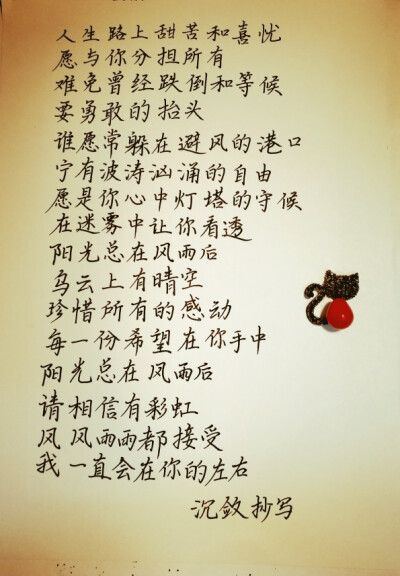 人生路上甜苦和喜忧
愿与你分担所有
难免曾经跌倒和等候
要勇敢的抬头
谁愿常躲在避风的港口
宁有波涛汹涌的自由
愿是你心中灯塔的守候
在迷雾中让你看透
阳光总在风雨后
乌云上有晴空
珍惜所有的感动
每一份希望在你手中
阳光总在风雨后
请相信有彩虹
风风雨雨都接受
我一直会在你的左右
沉敛抄写